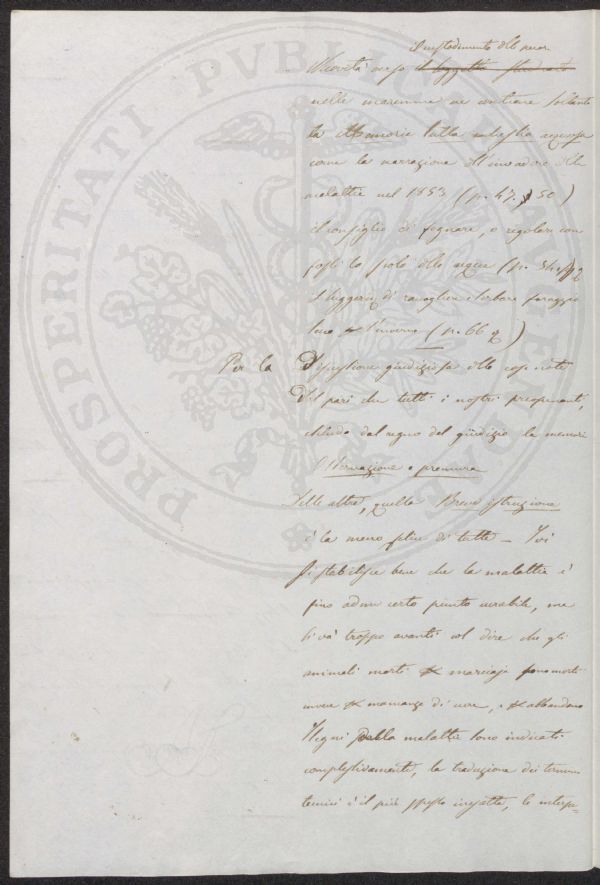 PROSPERITATI PUBLICAE AUGENDAE
Novità verso
nelle maremme ne contiene soltanto
la Memoria sulla acquosa
come la narrazione dell'invadere della
malattia nel 1853 (p. 47. 50)
il consiglio di fognare, o regolare con
fossi lo scolo delle acque (p. 54.
e suggerisce di
l'inverno (p. 66
Per la Discussione giudiziosa delle cose note
Del pari che tutti i nostri preopinanti,
chiudo dal regno del giudizio la memoria
Osservazione e premura
Delle altre, quella Breve istruzione
è la meno felice di tutte – Ivi
si stabilisce bene che la malattia è
fino ad un certo punto curabile, ma
si va troppo avanti col dire che gli
animali morti marciaja sono morti
invece mancanza di cure, abbandono
I segni della malattia sono indicati
complessivamente, la traduzione dei termini
tecnici è il più spesso inesatta, le interpe=